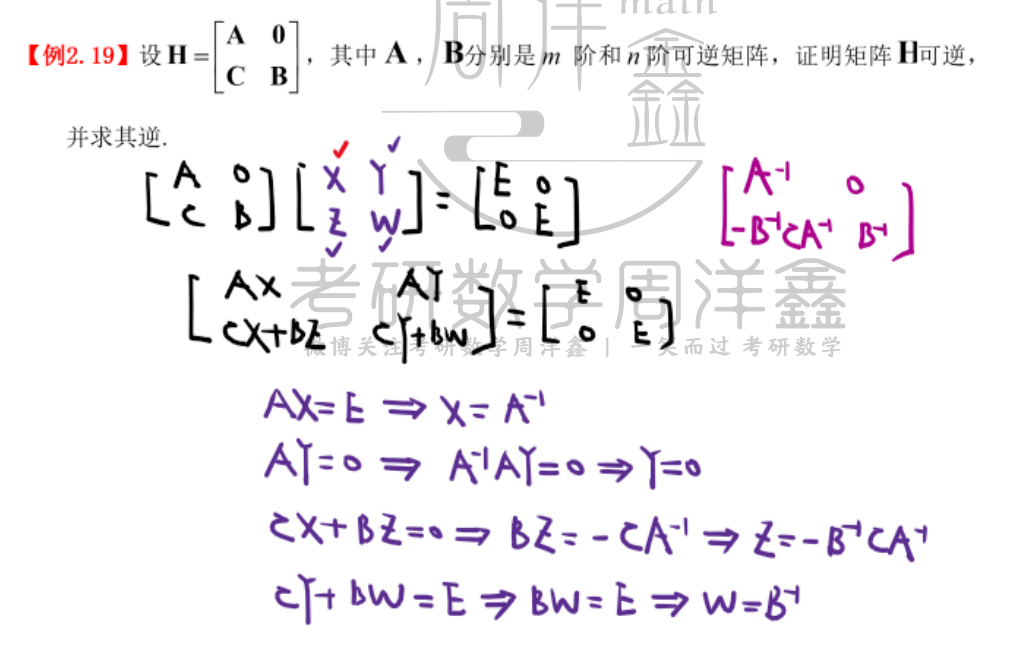 周洋鑫 math
【例2.19】设 H = [A 0; C B], 其中 A, B分别是 m 阶和 n 阶可逆矩阵, 证明矩阵 H可逆,
并求其逆.
[A 0; C B] [X Y; Z W] = [E 0; 0 E]
[A⁻¹ 0; -B⁻¹CA⁻¹ B⁻¹]
[AX AY; CX+BZ CY+BW] = [E 0; 0 E]
考研数学周洋鑫
微博关注考研数学周洋鑫 | 一笑而过 考研数学
AX=E ⇒ X=A⁻¹
AY=0 ⇒ A⁻¹AY=0 ⇒ Y=0
CX+BZ=0 ⇒ BZ=-CA⁻¹ ⇒ Z=-B⁻¹CA⁻¹
CY+BW=E ⇒ BW=E ⇒ W=B⁻¹